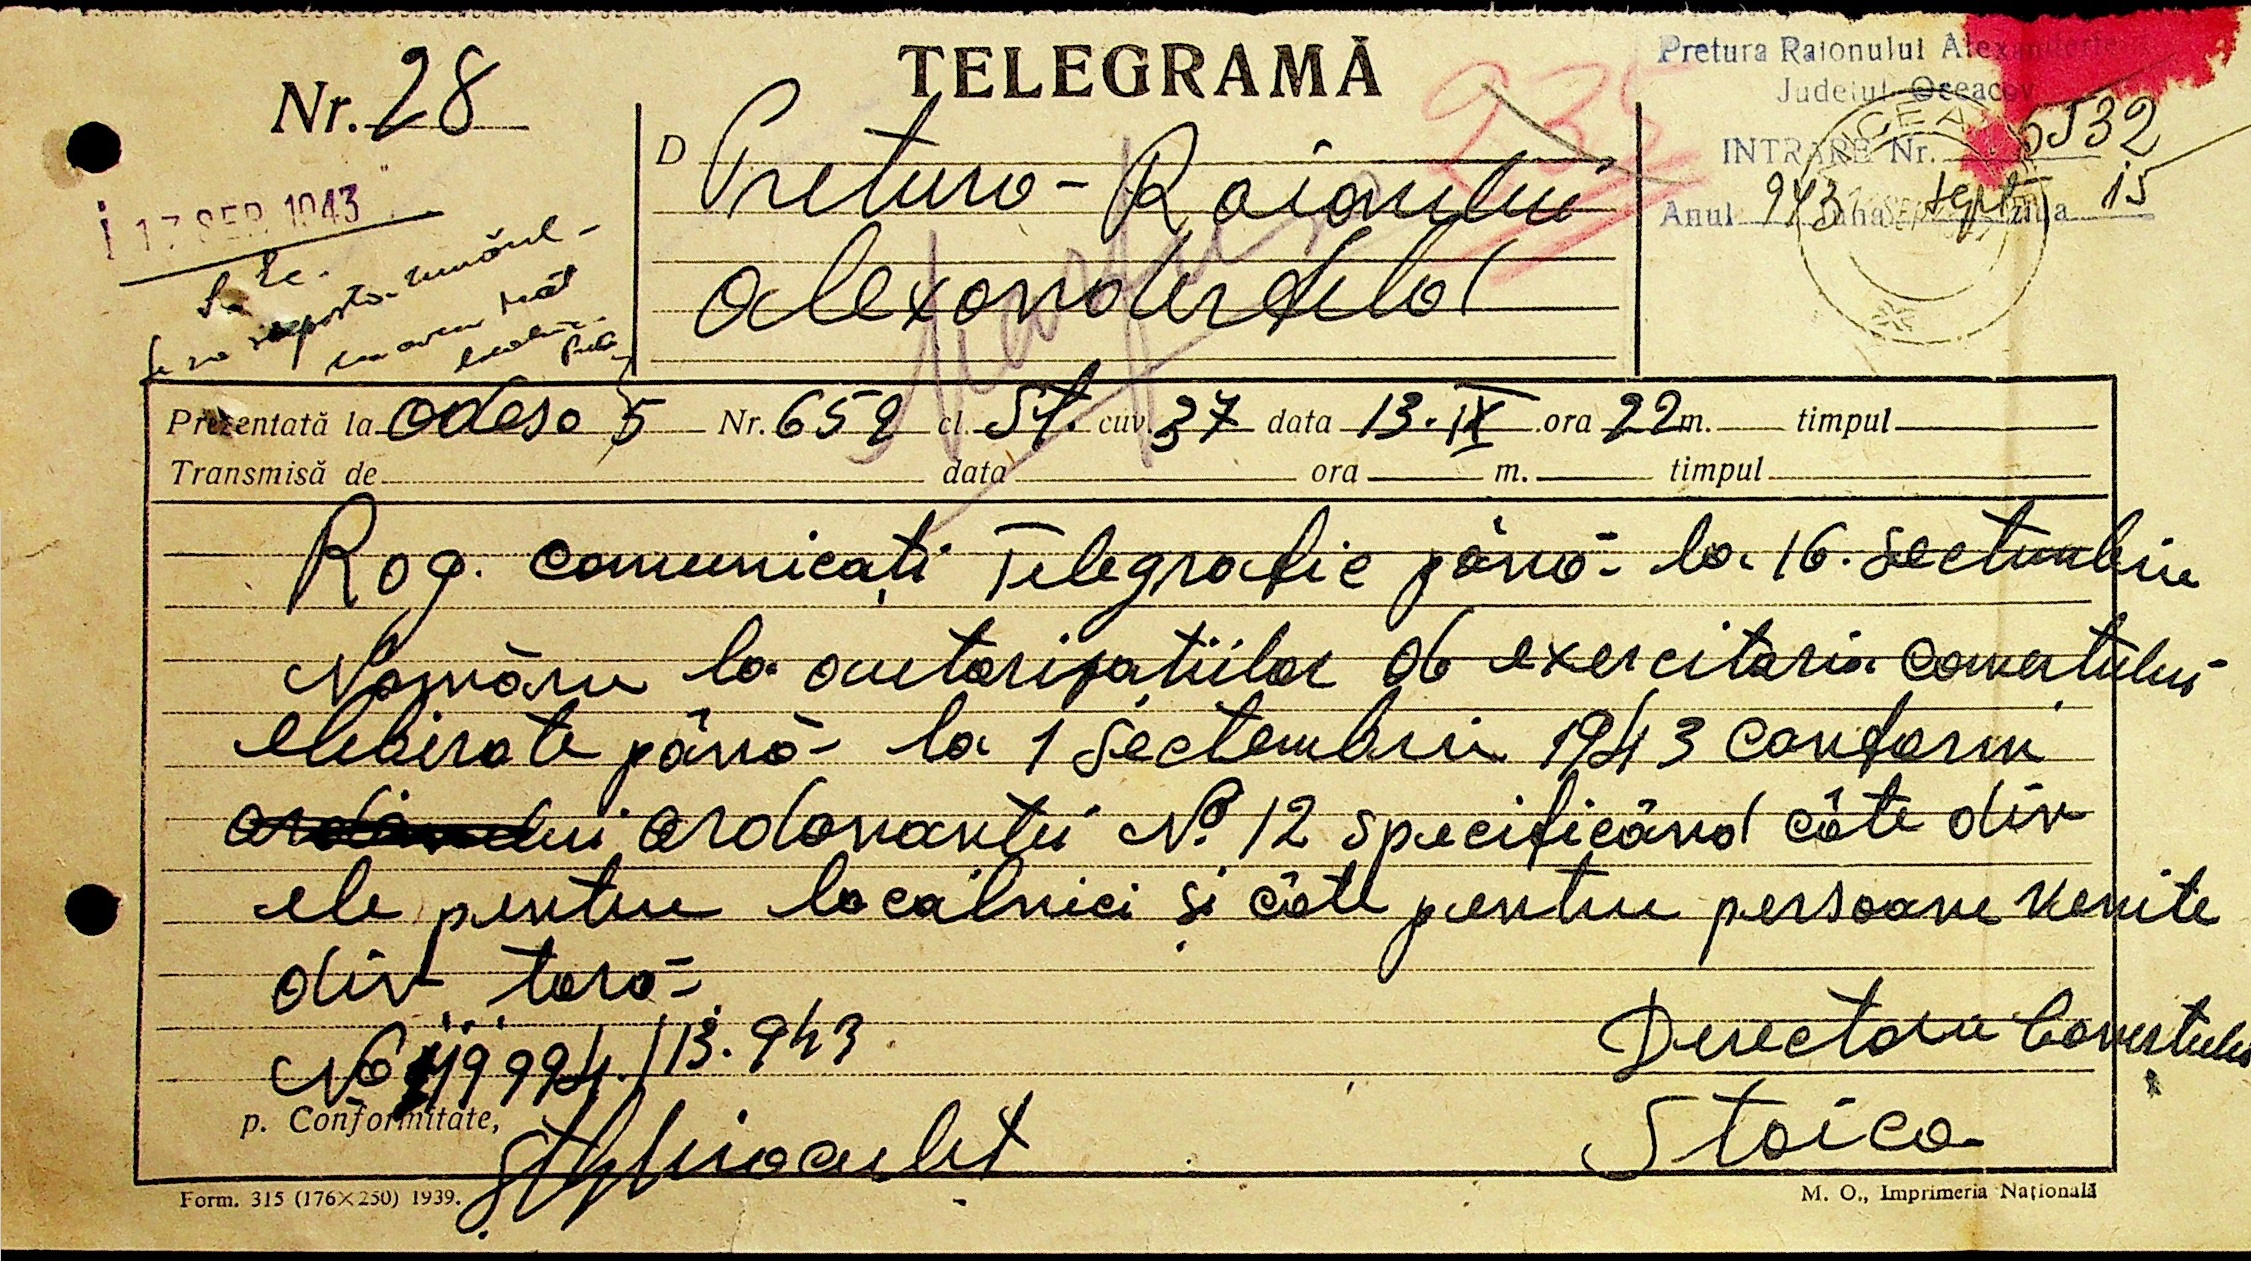 TELEGRAMĂ
Nr. 28
Pretura Raionului
Judetul Oceacov
INTRARE Nr. 5532
Anul 943 luna Sept ziua 15
17 SEP. 1943
D Pretura - Raionului
Alexanderfeld
935
Prezentată la Odesa 5 Nr. 652 cl. St. cuv. 37 data 13.IX ora 22 m. timpul
Transmisă de data ora m. timpul
Rog. comunicați Telegrafic până la 16. Sectembrie
Numărul autorizațiilor de exercitarea comertului
eleberate până la 1 Sectembrie 1943 conform
ordinului ordonanței No 12 specificând câte din
ele pentru localnici și câte pentru persoane venite
din tară
No 49994/13.943
Derectoru Comertului
Stoica
p. Conformitate,
Form. 315 (176×250) 1939.
M. O., Imprimeria Națională